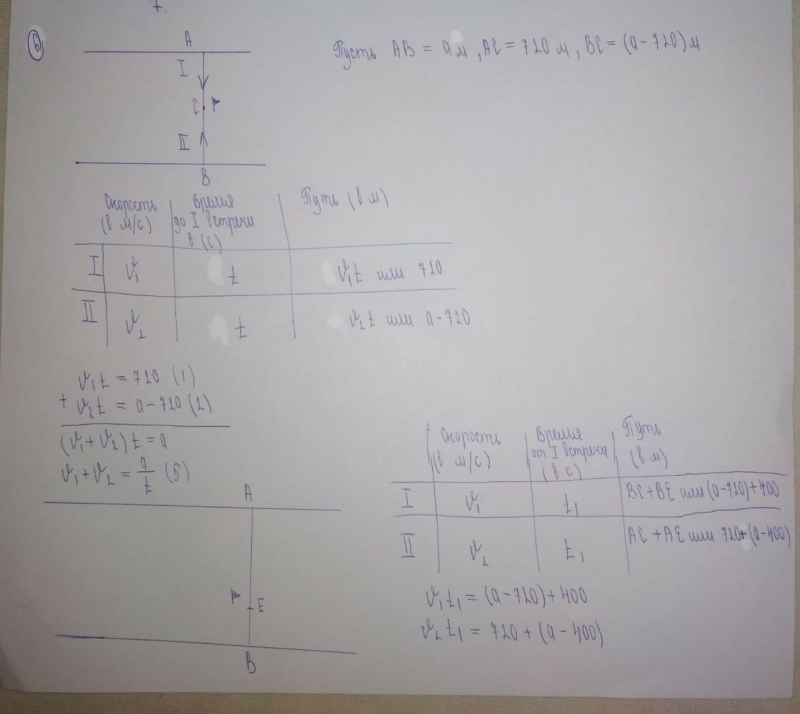 7.
6
A
Пусть AB = a м, AC = 720 м, BC = (a-720) м
I
C
II
B
Скорость (в м/с) Время до I встречи в (с) Путь (в м)
I v₁ t v₁t или 720
II v₂ t v₂t или a-720
v₁t = 720 (1)
+ v₂t = a-720 (2)
(v₁+v₂) t = a
v₁+v₂ = a/t (3)
A
E
B
Скорость (в м/с) Время от I встречи (в с) Путь (в м)
I v₁ t₁ BC+BE или (a-720)+400
II v₂ t₁ AC+AE или 720+(a-400)
v₁t₁ = (a-720)+400
v₂t₁ = 720+(a-400)